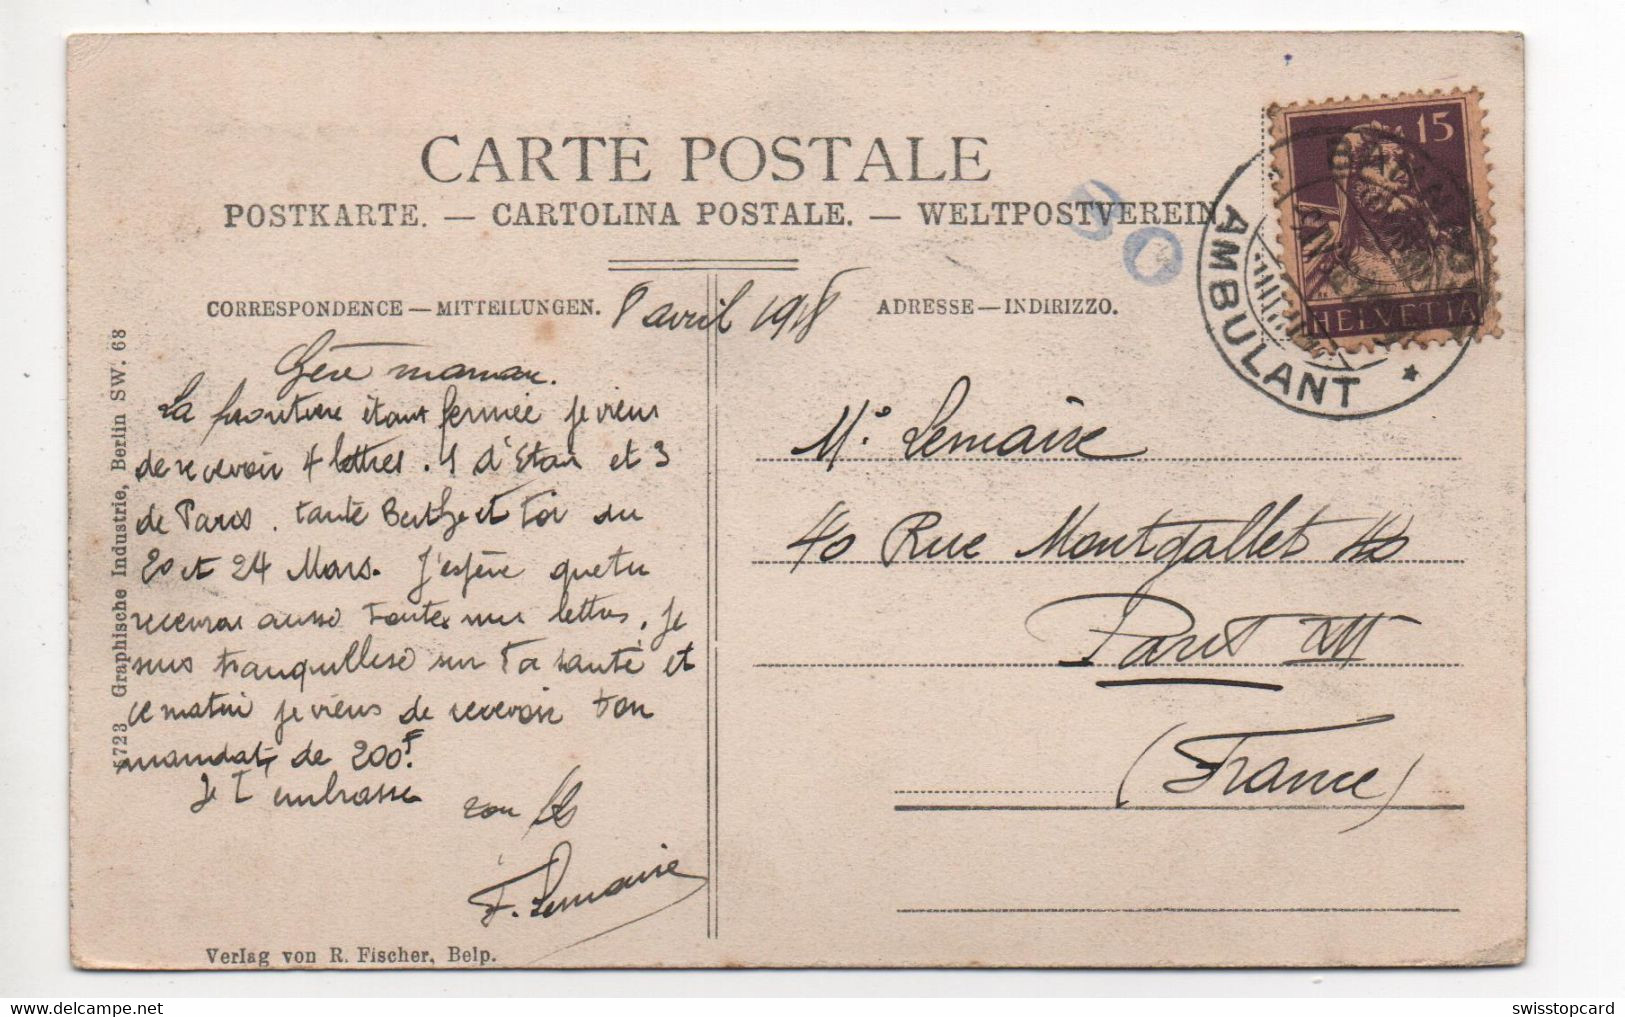 CARTE POSTALE
POSTKARTE. — CARTOLINA POSTALE. — WELTPOSTVEREIN
30
15
HELVETIA
AMBULANT *
CORRESPONDENCE — MITTEILUNGEN.
8 avril 1918
ADRESSE — INDIRIZZO.
maman.
La frontière étant fermée je viens
de recevoir 4 lettres. 1 d'Etat et 3
de Paris. tante Berthe et Toi du
20 et 24 Mars. J'espère que tu
recevras aussi toutes mes lettres. Je
suis tranquillisé sur ta santé et
ce matin je viens de recevoir ton
mandat de 200F.
Je t'embrasse
ton fils
F. Lemaire
Mr. Lemaire
40 Rue Montgallet 40
Paris XII
(France)
5723 Graphische Industrie, Berlin SW. 68
Verlag von R. Fischer, Belp.
swisstopcard